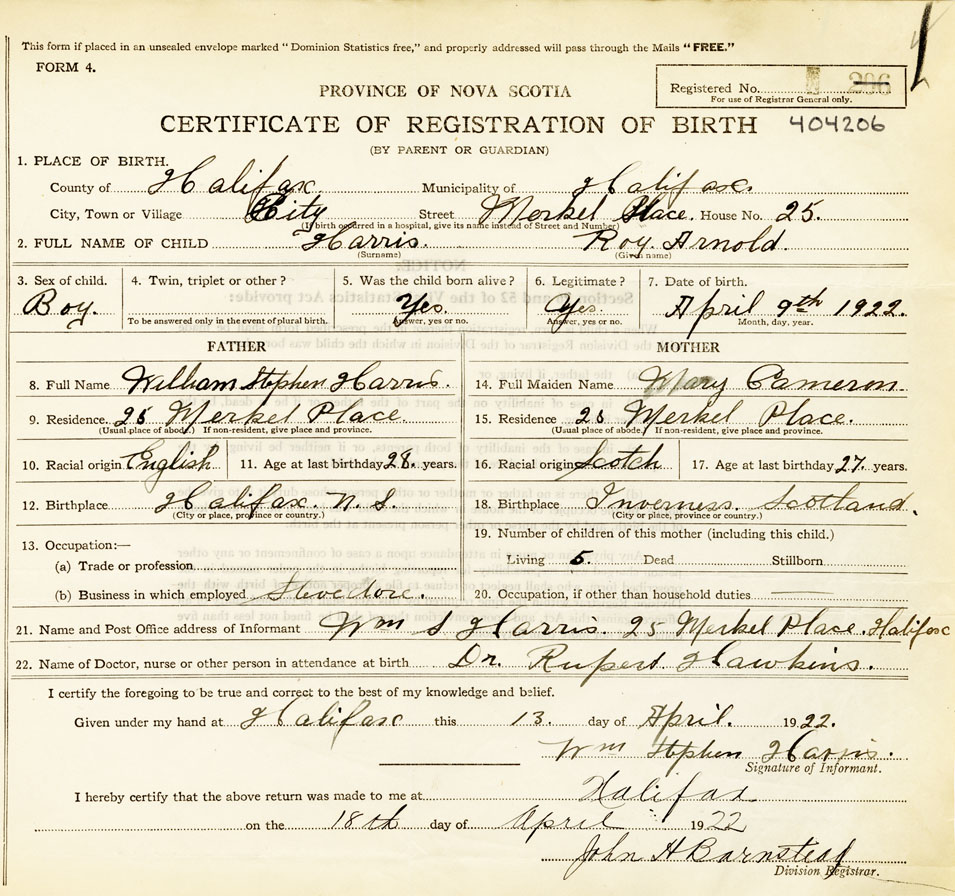 This form if placed in an unsealed envelope marked “Dominion Statistics free,” and properly addressed will pass through the Mails “FREE.”
FORM 4.
Registered No. 206
For use of Registrar General only.
PROVINCE OF NOVA SCOTIA
CERTIFICATE OF REGISTRATION OF BIRTH 404206
(BY PARENT OR GUARDIAN)
1. PLACE OF BIRTH.
County of Halifax. Municipality of Halifax.
City, Town or Village City Street Merkel Place. House No. 25.
(If birth occurred in a hospital, give its name instead of Street and Number)
2. FULL NAME OF CHILD Harris. Roy Arnold.
(Surname) (Given name)
3. Sex of child. 4. Twin, triplet or other? 5. Was the child born alive? 6. Legitimate? 7. Date of birth.
Boy. Yes. Yes. April 9th 1922.
To be answered only in the event of plural birth. Answer, yes or no. Answer, yes or no. Month, day, year.
FATHER MOTHER
8. Full Name William Stephen Harris. 14. Full Maiden Name Mary Cameron
9. Residence. 25 Merkel Place 15. Residence 25 Merkel Place.
(Usual place of abode.) If non-resident, give place and province. (Usual place of abode.) If non-resident, give place and province.
10. Racial origin English 11. Age at last birthday 28. years. 16. Racial origin Scotch 17. Age at last birthday 27. years.
12. Birthplace Halifax. N. S. 18. Birthplace Inverness. Scotland.
(City or place, province or country.) (City or place, province or country.)
13. Occupation:— 19. Number of children of this mother (including this child.)
(a) Trade or profession Living 5. Dead Stillborn
(b) Business in which employed Stevedore. 20. Occupation, if other than household duties —
21. Name and Post Office address of Informant Wm S Harris. 25 Merkel Place. Halifax
22. Name of Doctor, nurse or other person in attendance at birth Dr. Rupert Hawkins.
I certify the foregoing to be true and correct to the best of my knowledge and belief.
Given under my hand at Halifax this 13. day of April. 1922.
Wm Stephen Harris.
Signature of Informant.
I hereby certify that the above return was made to me at Halifax
on the 18th day of April 1922
John H Barnstead
Division Registrar.